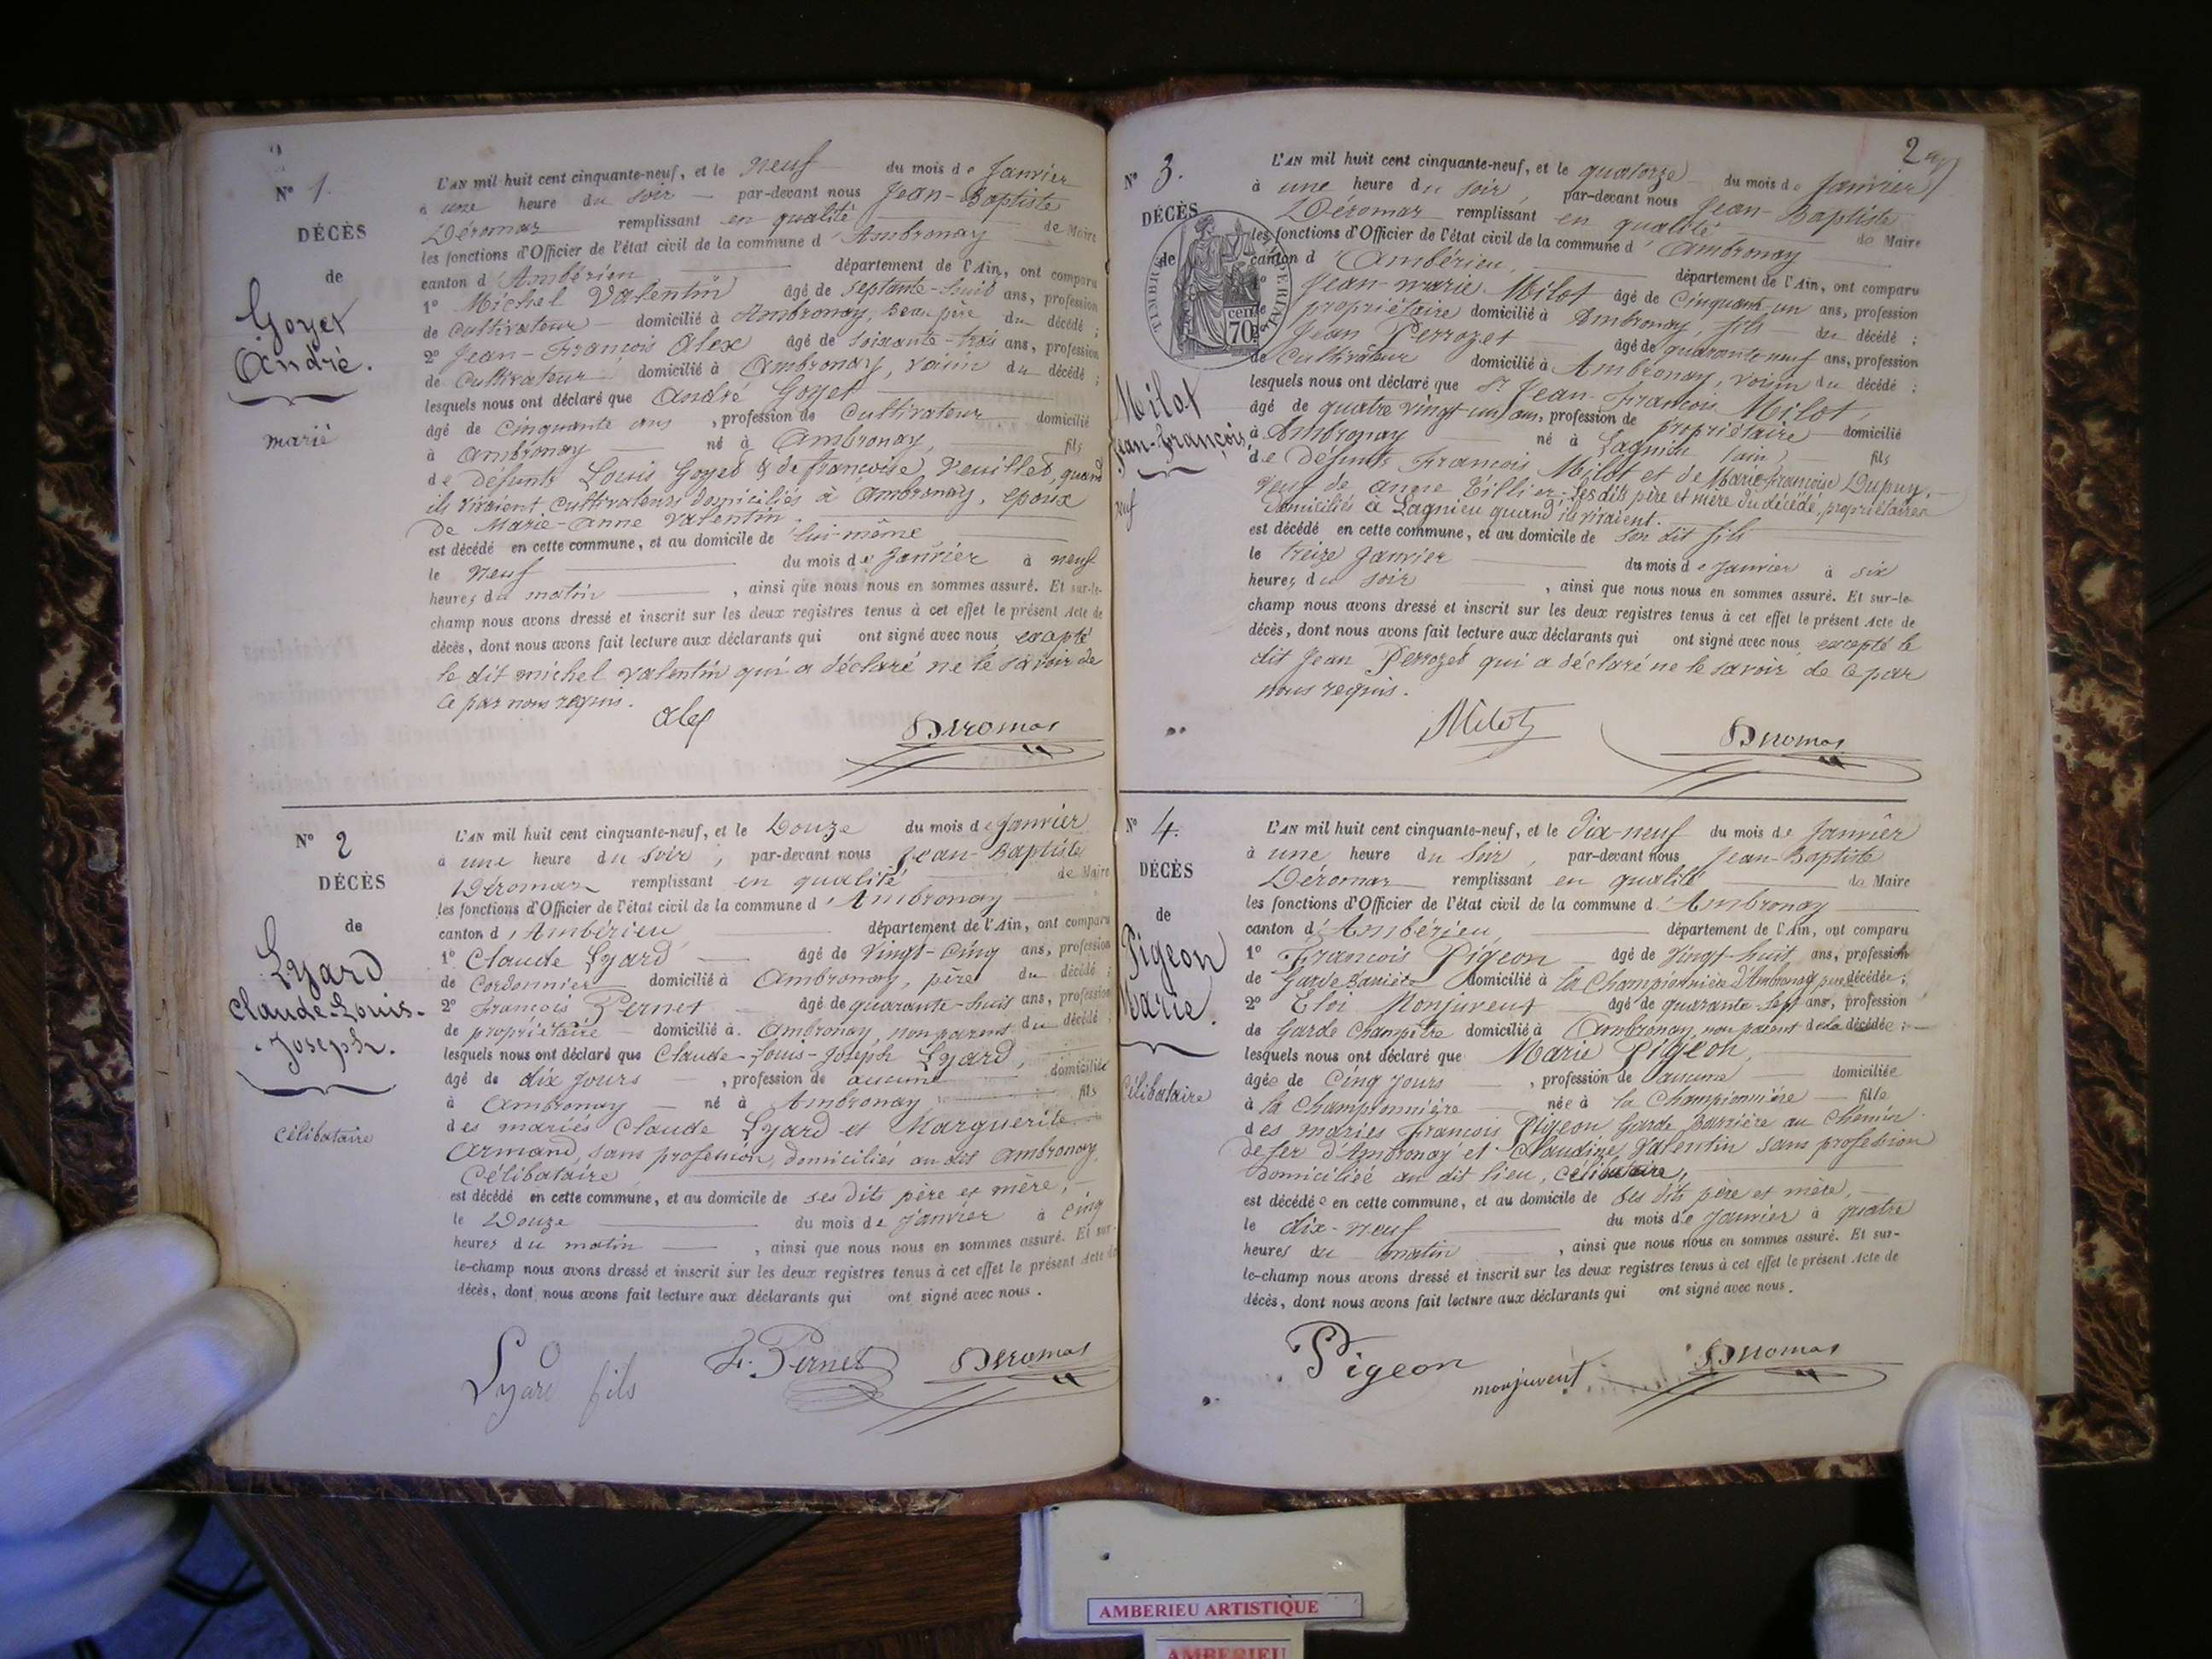 N° 1.
DÉCÈS
de
Goyet
André.
marié
L'AN mil huit cent cinquante-neuf, et le neuf du mois de Janvier
à une heure du soir par-devant nous Jean-Baptiste
Déromas remplissant en qualité de Maire
les fonctions d'Officier de l'état civil de la commune d'Ambronay
canton d'Ambérieu département de l'Ain, ont comparu
1° Michel Valentin âgé de septante-huit ans, profession
de Cultivateur domicilié à Ambronay, beau père du décédé ;
2° Jean-François Alex âgé de soixante-trois ans, profession
de Cultivateur domicilié à Ambronay, voisin du décédé ;
lesquels nous ont déclaré que André Goyet
âgé de Cinquante ans , profession de Cultivateur domicilié
à Ambronay né à Ambronay, fils
de défunts Louis Goyet & de françoise Veuillet, quand
ils vivaient cultivateurs domiciliés à Ambronay, époux
de Marie-Anne Valentin.
est décédé en cette commune, et au domicile de lui-même
le neuf du mois de Janvier à neuf
heures du matin , ainsi que nous nous en sommes assuré. Et sur-le-
champ nous avons dressé et inscrit sur les deux registres tenus à cet effet le présent Acte de
décès, dont nous avons fait lecture aux déclarants qui ont signé avec nous excepté
le dit michel Valentin qui a déclaré ne le savoir de
ce par nous requis.
Alex Deromas
N° 2
DÉCÈS
de
Lyard
Claude-Louis-
Joseph.
célibataire
L'AN mil huit cent cinquante-neuf, et le Douze du mois de Janvier
à une heure du soir , par-devant nous Jean-Baptiste
Déromas remplissant en qualité de Maire
les fonctions d'Officier de l'état civil de la commune d'Ambronay
canton d'Ambérieu département de l'Ain, ont comparu
1° Claude Lyard âgé de Vingt-Cinq ans, profession
de Cordonnier domicilié à Ambronay, père du décédé ;
2° François Pernet âgé de quarante-huit ans, profession
de propriétaire domicilié à Ambronay, non parent du décédé
lesquels nous ont déclaré que Claude-Louis-Joseph Lyard,
âgé de dix jours , profession de aucune domicilié
à Ambronay né à Ambronay fils
des mariés Claude Lyard et Marguerite
Armand, sans profession, domiciliés au dit Ambronay,
Célibataire
est décédé en cette commune, et au domicile de ses dits père et mère,
le Douze du mois de janvier à cinq
heures du matin , ainsi que nous nous en sommes assuré. Et sur-
le-champ nous avons dressé et inscrit sur les deux registres tenus à cet effet le présent Acte de
décès, dont nous avons fait lecture aux déclarants qui ont signé avec nous.
Lyard fils F. Pernet Deromas
2
N° 3.
DÉCÈS
de
TIMBRE IMPERIAL
70 cent
Milot
Jean-François
Veuf
L'AN mil huit cent cinquante-neuf, et le quatorze du mois de Janvier
à une heure du soir par-devant nous Jean-Baptiste
Déromas remplissant en qualité de Maire
les fonctions d'Officier de l'état civil de la commune d'Ambronay
canton d'Ambérieu, département de l'Ain, ont comparu
1° Jean-marie Milot âgé de Cinquante un ans, profession
de propriétaire domicilié à Ambronay, fils du décédé ;
Jean Perrozet âgé de quarante neuf ans, profession
de Cultivateur domicilié à Ambronay, voisin du décédé ;
lesquels nous ont déclaré que Sr Jean-François Milot,
âgé de quatre vingt un ans, profession de propriétaire domicilié
à Ambronay né à Lagnieu (ain) fils
de défunts François Milot et de Marie françoise Dupuy,
Veuf de anne Tillier. Les dits père et mère du décédé, propriétaires
domiciliés à Lagnieu quand ils vivaient.
est décédé en cette commune, et au domicile de son dit fils
le treize Janvier du mois de Janvier à six
heures du soir , ainsi que nous nous en sommes assuré. Et sur-le-
champ nous avons dressé et inscrit sur les deux registres tenus à cet effet le présent Acte de
décès, dont nous avons fait lecture aux déclarants qui ont signé avec nous excepté le
dit Jean Perrozet qui a déclaré ne le savoir de ce par
nous requis.
Milot Deromas
N° 4.
DÉCÈS
de
Pigeon
Marie.
Célibataire
L'AN mil huit cent cinquante-neuf, et le Dix-neuf du mois de Janvier
à une heure du soir , par-devant nous Jean-Baptiste
Déromas remplissant en qualité de Maire
les fonctions d'Officier de l'état civil de la commune d'Ambronay
canton d'Ambérieu, département de l'Ain, ont comparu
1° François Pigeon âgé de Vingt-huit ans, profession
de Garde Barrière domicilié à la Championnière d'Ambronay père décédée ;
2° Eloi Monjuvent âgé de quarante-sept ans, profession
de Garde Champêtre domicilié à Ambronay, non parent de la décédée ;
lesquels nous ont déclaré que Marie Pigeon,
âgée de Cinq jours , profession de aucune domiciliée
à la Championnière née à la Championnière fille
des mariés François Pigeon Garde barrière au Chemin
de fer d'Ambronay et Claudine Valentin sans profession
Domiciliée au dit lieu, célibataire,
est décédée en cette commune, et au domicile de ses dits père et mère,
le dix-neuf du mois de Janvier à quatre
heures du matin , ainsi que nous nous en sommes assuré. Et sur-
le-champ nous avons dressé et inscrit sur les deux registres tenus à cet effet le présent Acte de
décès, dont nous avons fait lecture aux déclarants qui ont signé avec nous.
Pigeon monjuvent Deromas
AMBERIEU ARTISTIQUE
AMBERIEU